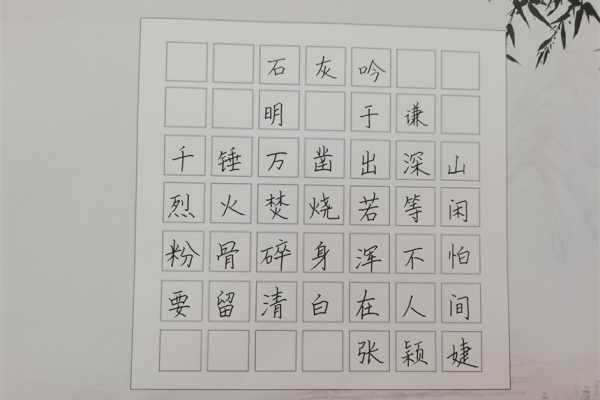 石灰吟
明 于谦
千锤万凿出深山
烈火焚烧若等闲
粉骨碎身浑不怕
要留清白在人间
张颖婕